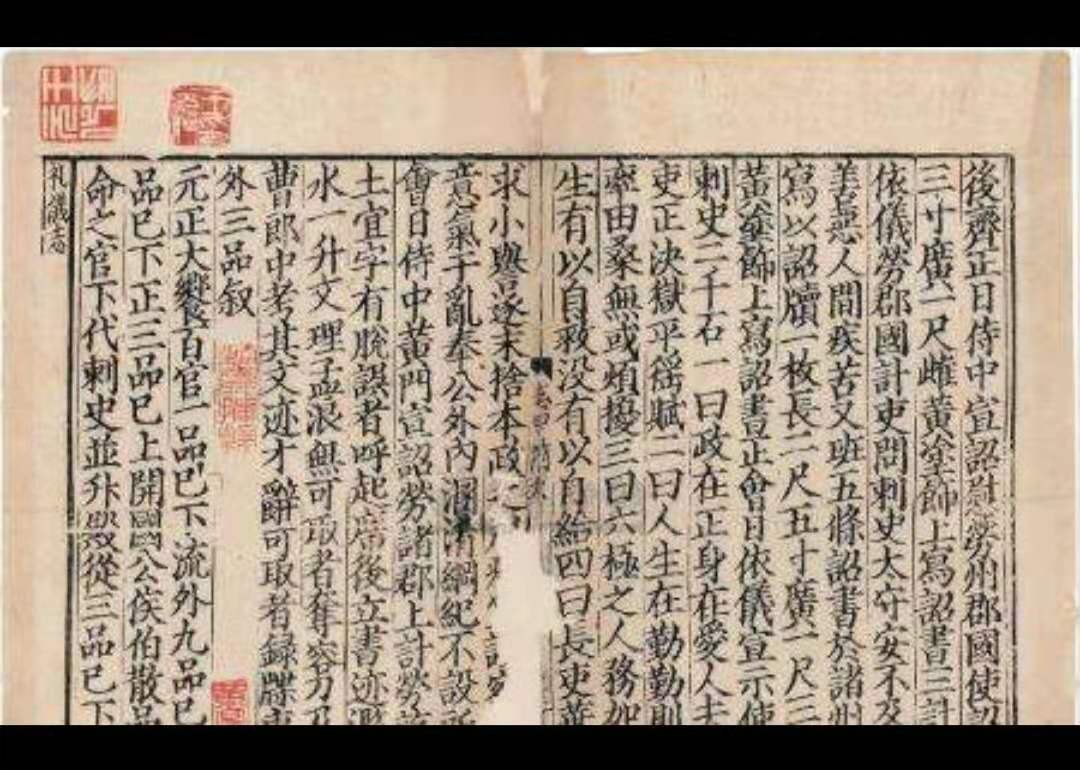 後齊正日侍中宣詔慰勞州郡國使詔
三寸廣一尺雌黃塗飾上寫詔書三計
依儀勞郡國計吏問刺史太守安不及
善惡人間疾苦又班五條詔書於諸州
寫以詔牘一枚長二尺五寸廣一尺三
黃塗飾上寫詔書正會日依儀宣示使
刺史二千石一曰政在正身在愛人去
吏正決獄平徭賦二曰人生在勤勤則
率由桑無或煩擾三曰六極之人務加
生有以自救没有以自給四曰長吏華
求小譽逐末捨本政之
意氣干亂奉公外內溷淆綱紀不設所
會日侍中黃門宣詔勞諸郡上計勞
土宜字有脫誤者呼起席後立書迹濫
水一升文理孟浪無可取者奪容刀及
曹郎中考其文迹才辭可取者録牒
外三品叙
元正大饗百官一品巳下流外九品巳
品巳下正三品巳上開國公侯伯散品
命之官下代刺史並升殿從三品巳下
礼儀志